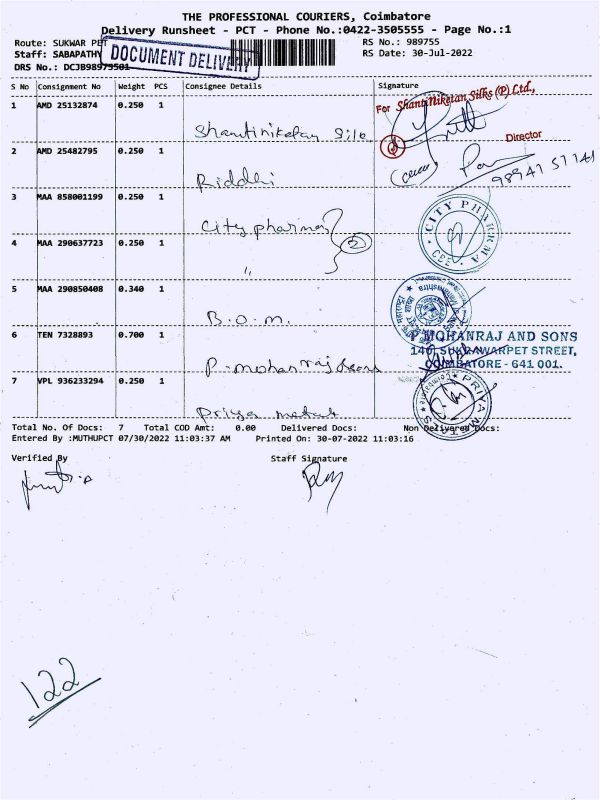 THE PROFESSIONAL COURIERS, Coimbatore
Delivery Runsheet - PCT - Phone No.:0422-3505555 - Page No.:1
Route: SUKWAR PET
RS No.: 989755
Staff: SABAPATHY
DOCUMENT DELIVERY
RS Date: 30-Jul-2022
DRS No.: DCJB98975501
S No Consignment No Weight PCS Consignee Details Signature
For Shanti Niketan Silks (P) Ltd.,
1 AMD 25132874 0.250 1
Shantiniketan Silk
Director
2 AMD 25482795 0.250 1
98941 57141
Riddhi
3 MAA 858001199 0.250 1
City pharma
CITY PHARMA
CBE
4 MAA 290637723 0.250 1
2
"
5 MAA 290850408 0.340 1
B.O.M.
P MOHANRAJ AND SONS
6 TEN 7328893 0.700 1
140, SUKRAWARPET STREET,
COIMBATORE - 641 001.
P. mohanraj &sons
7 VPL 936233294 0.250 1
Priya
PRIYA
Total No. Of Docs: 7 Total COD Amt: 0.00 Delivered Docs: Non Delivered Docs:
Entered By :MUTHUPCT 07/30/2022 11:03:37 AM Printed On: 30-07-2022 11:03:16
Verified By Staff Signature
122